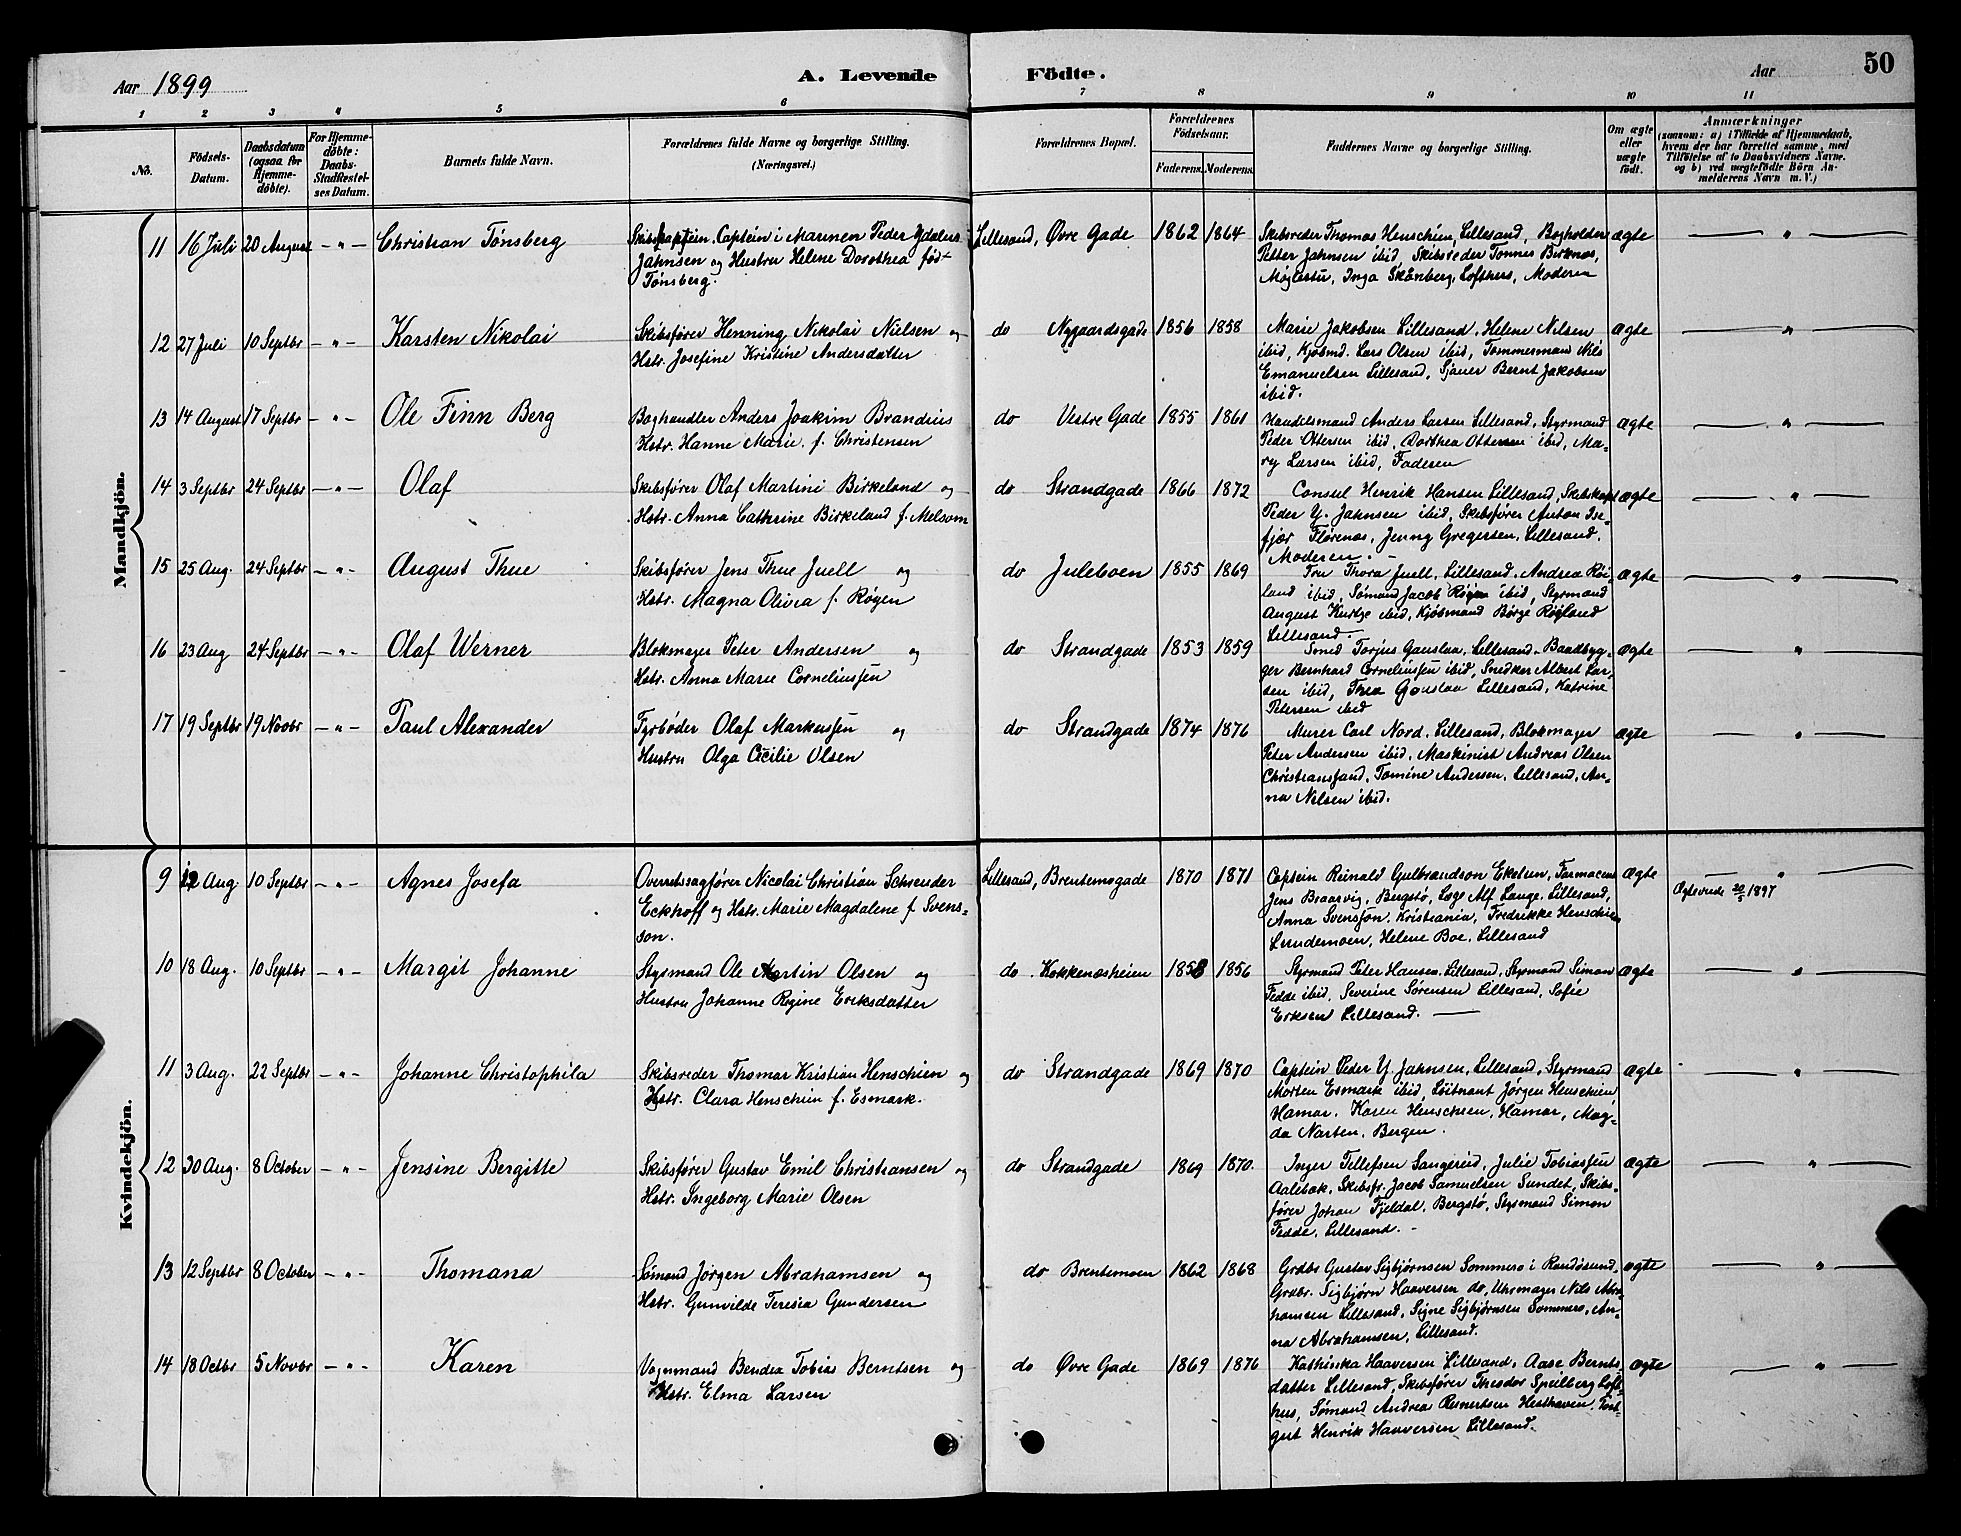 Aar 1899
A. Levende Födte.
Aar
50
1 2 3 4 5 6 7 8 9 10 11
No.
Födsels-Datum.
Daabsdatum (ogsaa for Hjemme-döbte).
For Hjemme-döbte: Daabs-Stadfæstel-ses Datum.
Barnets fulde Navn.
Forældrenes fulde Navne og borgerlige Stilling. (Næringsvei.)
Forældrenes Bopæl.
Forældrenes Födselsaar.
Faderens. Moderens.
Faddernes Navne og borgerlige Stilling.
Om ægte eller uægte födt.
Anmærkninger
(saasom: a) i Tilfælde af Hjemmedaab,
hvem der har forrettet samme, med
Tilföielse af to Daabsvidners Navne,
og b) ved uægtefödte Börn An-
melderens Navn m. V.)
Mandkjön.
11 16 Juli 20 August — " — Christian Tönsberg
Skibscaptein, Captein i Marinen Peder Ydalus
Jahnsen og Hustru Helene Dorothea föd-
Tönsberg.
Lillesand, Øvre Gade 1862 1864
Skibsreder Thomas Henschien, Lillesand, Bogholder
Petter Jahnsen ibid Skibsreder Tönnes Birknes,
Møglestu, Inga Skånberg, Lofthus, Moderen
ægte — " —
12 27 Juli 10 Septbr — " — Karsten Nikolai
Skibsfører Henning Nikolai Nielsen og
Hstr. Josefine Kristine Andersdatter
do Nygaardsgade 1856 1858
Marie Jakobsen Lillesand, Helene Nilsen
ibid, Kjøbmd. Lars Olsen ibid, Tømmermand Nils
Emanuelsen Lillesand, Sjauer Bernt Jakobsen
ibid.
ægte — " —
13 14 August 17 Septbr — " — Ole Finn Berg
Boghandler Anders Joakim Brandius
Hstr. Hanne Marie f. Christensen
do Vestre Gade 1855 1861
Handelsmand Anders Larsen Lillesand, Styrmand
Peder Ottersen ibid, Dorthea Ottersen ibid, Ma-
ry Larsen ibid, Faderen
ægte — " —
14 3 Septbr 24 Septbr — " — Olaf
Skibsfører Olaf Martini Birkeland og
Hstr. Anna Cathrine Birkeland f. Melsom
do Strandgade 1866 1872
Consul Henrik Hansen Lillesand, Skibskapt
Peder Y. Jahnsen ibid, Skibsfører Anton Ise-
fjær Flørenes, Jenny Gregersen, Lillesand,
Moderen. —
ægte — " —
15 25 Aug. 24 Septbr — " — August Thue
Skibsfører Jens Thue Juell og
Hstr. Magna Olivia f. Røyen
do Juleboen 1855 1869
Fru Thora Juell, Lillesand, Andrea Röi-
land ibid, Sømand Jacob Røyen ibid, Styrmand
August Kurtze ibid, Kjøbmand Börge Röyland
Lillesand.
ægte — " —
16 23 Aug 24 Septbr — " — Olaf Werner
Blokmager Peter Andersen og
Hstr. Anna Marie Corneliusen
do Strandgade 1853 1859
Smed Torjus Gauslaa, Lillesand, Baadbyg-
ger Bernhard Corneliussen ibid, Snedker Albert Lar-
sen ibid, Thea Gauslaa Lillesand, Katrine
Petersen ibid
ægte — " —
17 19 Septbr 19 Novbr — " — Paul Alexander
Fyrbøder Olaf Markussen og
Hustru Olga Cecilie Olsen
do Strandgade 1874 1876
Murer Carl Nord, Lillesand, Blokmager
Peter Andersen ibid, Maskinist Andreas Olsen
Christianssand, Tomine Andersen, Lillesand, An-
na Nilsen ibid.
ægte — " —
Kvindekjön.
9 12 Aug 10 Septbr — " — Agnes Josefa
Overretssagfører Nicolai Christian Schreuder
Eckhoff og Hstr. Marie Magdalene f. Svens-
son.
Lillesand, Brentemogade 1870 1871
Captein Reinald Gulbrandson Ekelsen, Farmaceut
Jens Braarvig, Bergstø, Læge Alf Lange, Lillesand,
Anna Svensson, Kristiania, Fredrikke Henschien
Lundemoen, Helene Boe, Lillesand
ægte — " —
Ægteviede 20/5 1897
10 18 Aug. 10 Septbr — " — Margit Johanne
Styrmand Ole Martin Olsen og
Hustru Johanne Regine Eriksdatter
do Kokkenesheien 1858 1856
Styrmand Peter Hansen, Lillesand, Styrmand Simon
Fedde ibid, Severine Sørensen Lillesand, Sofie
Eriksen Lillesand. —
ægte — " —
11 3 Aug. 22 Septbr — " — Johanne Christophila
Skibsreder Thomas Kristian Henschien og
Hstr. Clara Henschien f. Esmark.
do Strandgade 1869 1870
Captein Peder Y. Jahnsen, Lillesand, Styrmand
Morten Esmark ibid, Løitnant Jørgen Henschien
Hamar, Karen Henschien, Hamar, Mag-
da Narten, Bergen.
ægte — " —
12 30 Aug. 8 October — " — Jensine Bergitte
Skibsfører Gustav Emil Christiansen og
Hstr. Ingeborg Marie Olsen
do Strandgade 1869 1870.
Inger Tellefsen Sangereid, Julie Tobiassen
Aalebæk, Skibsfr. Jacob Samuelsen Sundet, Skibs-
fører Johan Fjeldal, Bergstø, Styrmand Simon
Fedde, Lillesand. —
ægte — " —
13 12 Septbr 8 October — " — Thomana
Sømand Jørgen Abrahamsen og
Hstr. Gunvilde Teresia Gundersen
do Brentemoen 1862 1868
Grdbr Gustav Sigbjørnsen Sommerø i Randøsund,
Grdbr. Sigbjørn Haaversen do, Uhrmager Nils Abra-
hamsen Lillesand, Signe Sigbjørnsen Sommerø, An-
na Abrahamsen, Lillesand.
ægte — " —
14 18 Octbr 5 Novbr — " — Karen
Vognmand Bendix Tobias Berntsen og
Hstr. Elma Larsen
do Øvre Gade 1869 1876
Kathinka Haaversen Lillesand, Aase Bernts-
datter Lillesand, Skibsfører Theodor Speilberg Loft-
hus, Sømand Andrea Reinertsen Hesthaven, Tost-
gut Henrik Haaversen Lillesand.
ægte — " —